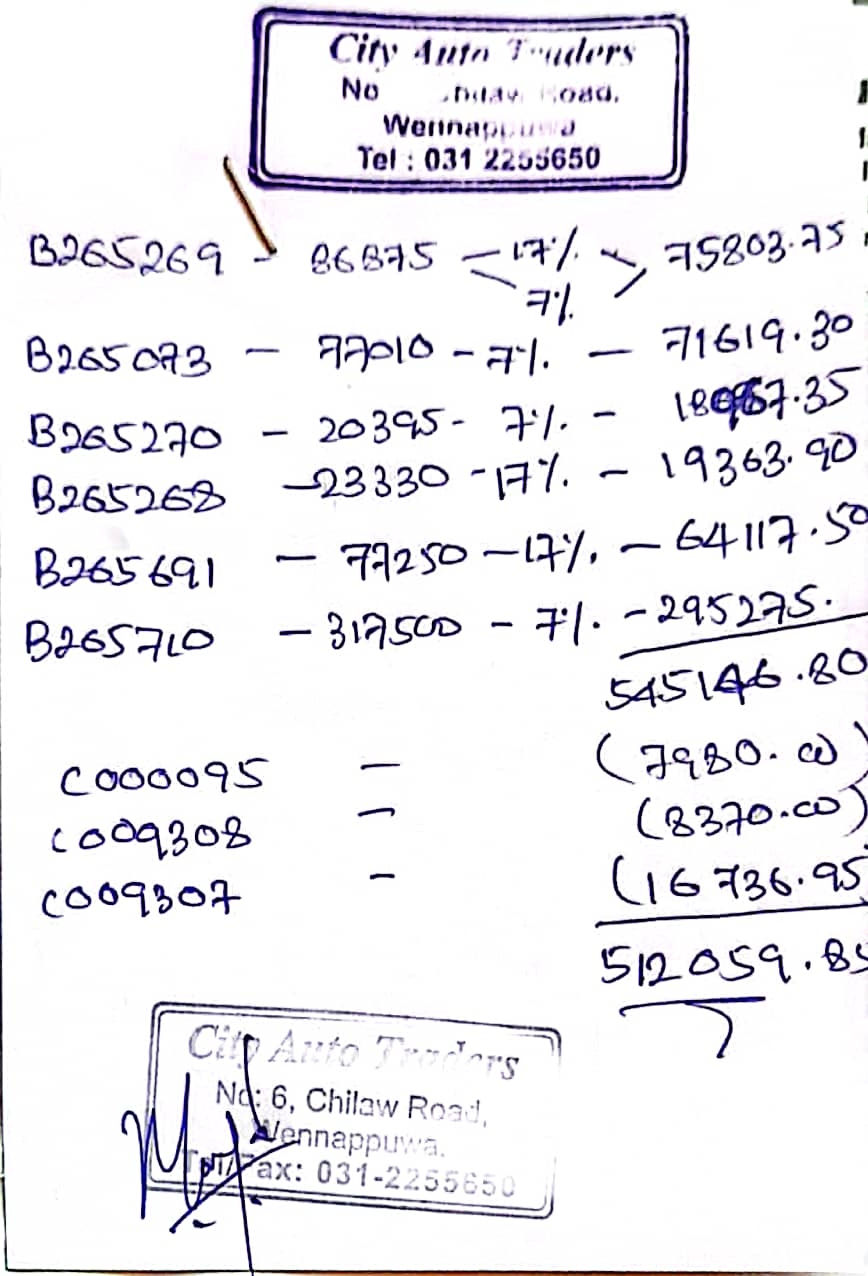 City Auto Traders
No Road,
Wennappuwa
Tel : 031 2255650
B265269 - 86875 - 17% - 75803.75
7%
B265073 - 77010 - 7% - 71619.30
B265270 - 20395 - 7% - 18967.35
B265268 - 23330 - 17% - 19363.90
B265691 - 77250 - 17% - 64117.50
B265710 - 317500 - 7% - 295275.
545146.80
C000095 - (7980.00)
C009308 - (8370.00)
C009307 - (16736.95
512059.85
City Auto Traders
No: 6, Chilaw Road,
Wennappuwa.
Tel/Fax: 031-2255650